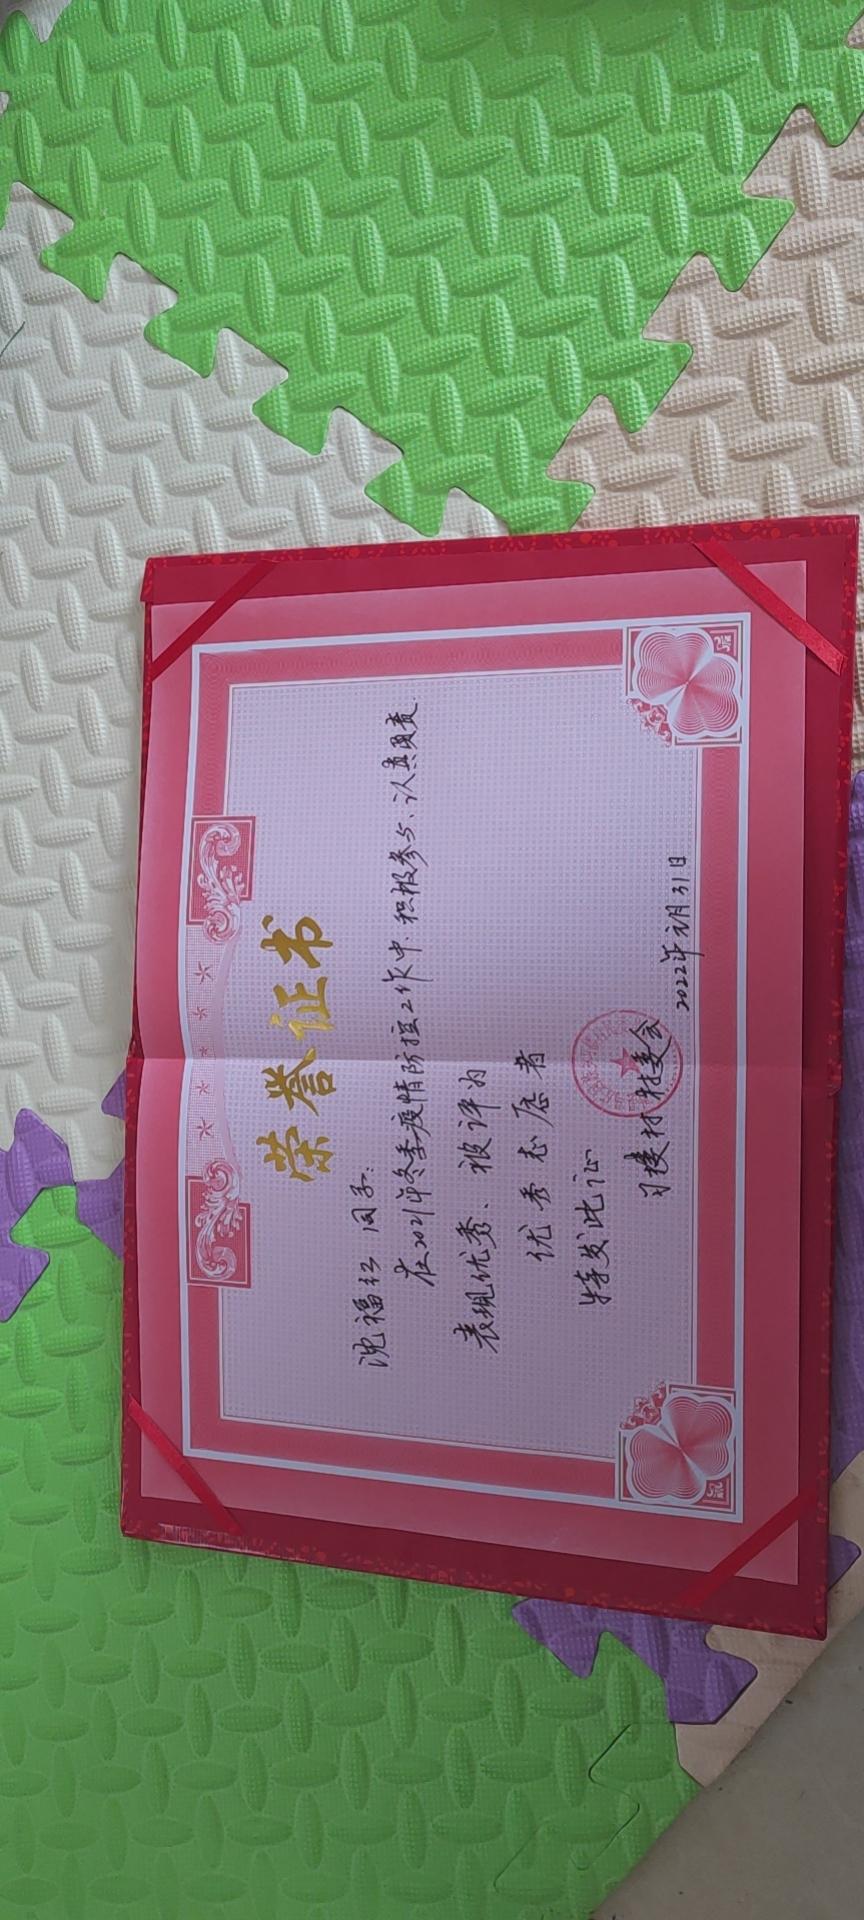 荣誉证书
沈福红 同志:
在2021年冬季疫情防控工作中,积极参与、认真负责.
表现优秀、被评为
优秀志愿者
特发此证
楼村 村委会
2022年元月31日